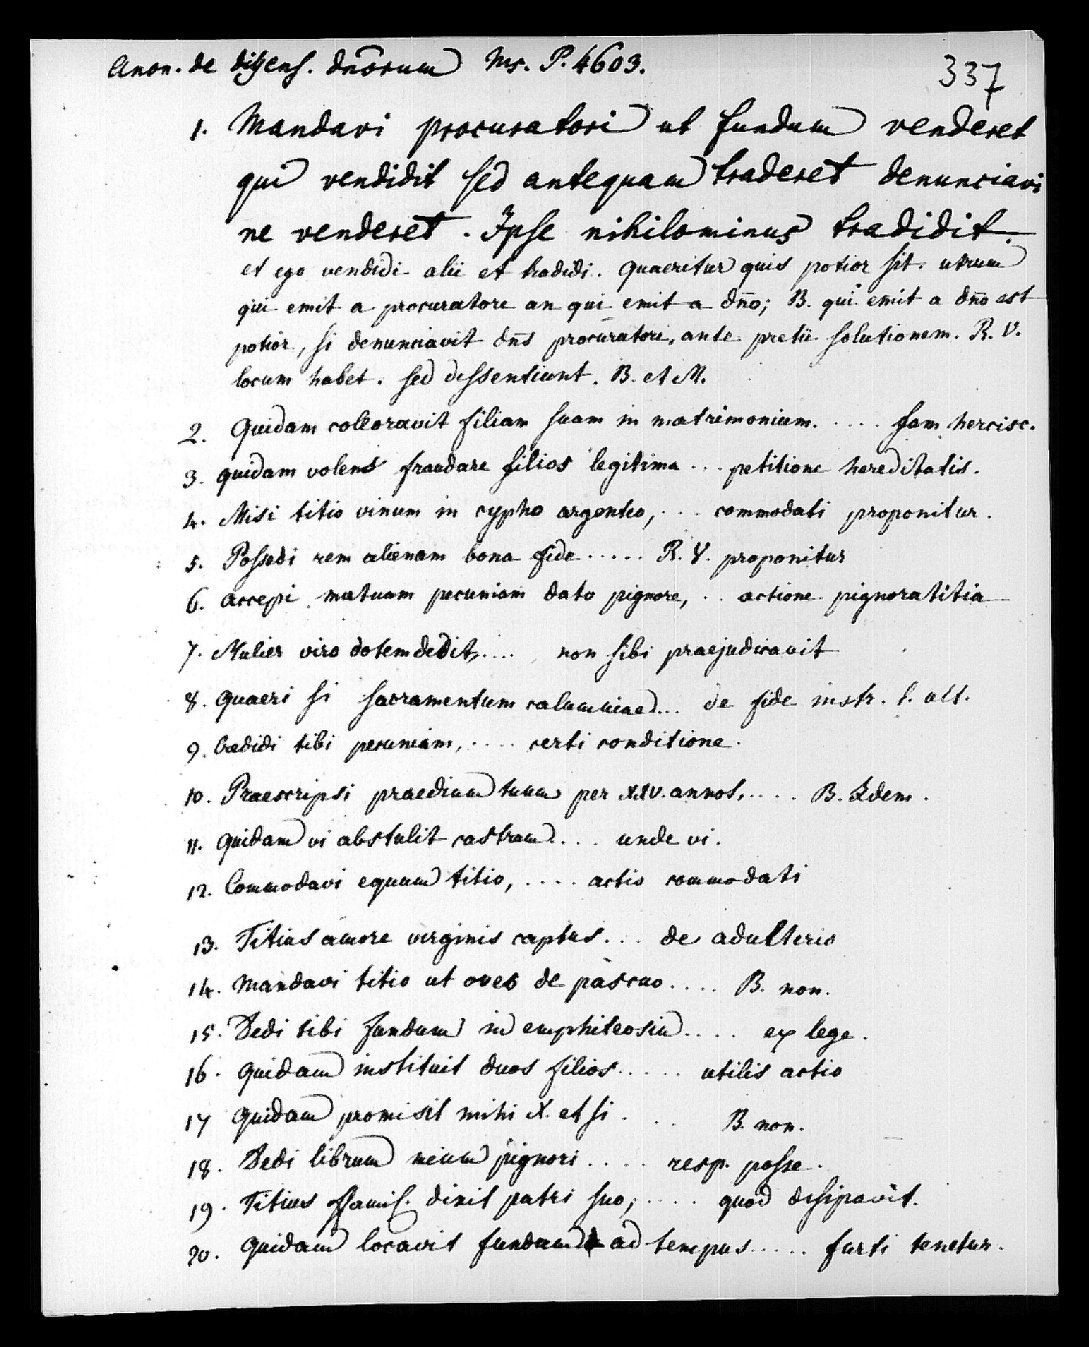 Anon. de dissens. dñorum Ms. P. 4603.
337
1. Mandavi procuratori ut fundum venderet
qui vendidit sed antequam traderet denunciavi
ne venderet. Ipse nihilominus tradidit.
et ego vendidi alii et tradidi. Quaeritur quis potior sit. utrum
qui emit a procuratore an qui emit a dño; B. qui emit a dño est
potior, si denunciavit dñs procuratori, ante pretii solutionem. R. V.
locum habet. sed dissentiunt. B. et M.
2. Quidam collocavit filiam suam in matrimonium. .... fam. hercisc.
3. quidam volens fraudare filios legitima ... petitione hereditatis.
4. Misi titio vinum in cypho argenteo, ... commodati proponitur.
5. Possedi rem alienam bona fide ..... R. V. proponitur
6. accepi mutuam pecuniam dato pignore, .. actione pignoratitia
7. Mulier viro dotem dedit, .... non sibi praejudicavit
8. Quaeri si sacramentum calumniae ... de fide instr. l. ult.
9. Credidi tibi pecuniam, .... certi conditione.
10. Praescripsi praedium tuum per XXV. annos, .... B. Idem.
11. quidam vi abstulit castrum .... unde vi.
12. Commodavi equum titio, .... actio commodati
13. Titius amore virginis captus ... de adulterio
14. Mandavi titio ut oves de pascuo .... B. non.
15. Dedi tibi fundum in emphiteosin .... ex lege.
16. quidam instituit duos filios ..... utilis actio
17 Quidam promisit mihi X. et si . . . B. non.
18. Dedi librum meum pignori .... resp. posse.
19. Titius dixit patri suo, .... quod dissipavit.
20. Quidam locavit fundum ad tempus ..... furti tenetur.